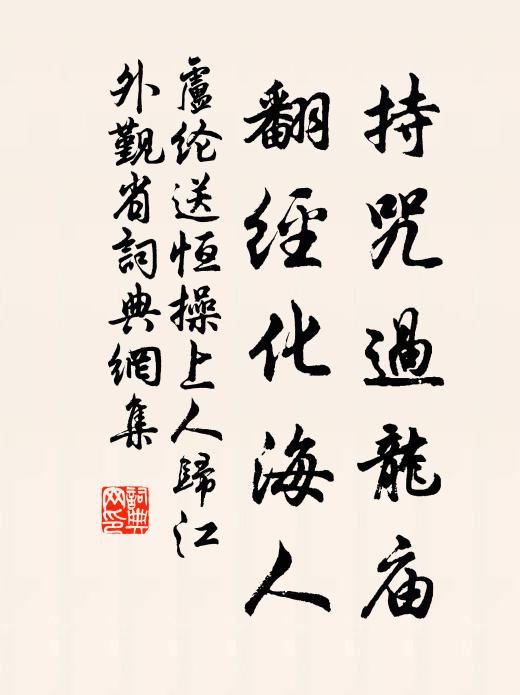 持咒過龍庙
翻經化海人
盧纶送恒操上人歸江
外觐省詞典網集
詞典网印